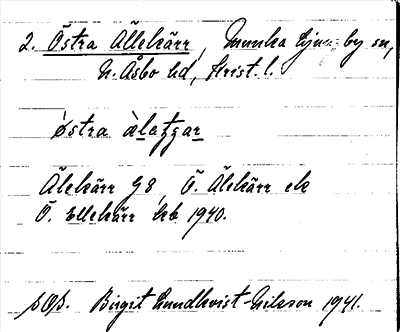 2. Östra Ällekärr, Munka Ljungby sn,
N. Åsbo hd, Krist. l.
östra àlatʒar
Älekärr G8, Ö. Älekärr ek
Ö. Ellekärr hb 1940.
Birgit Lundkvist-Nilsson 1941.